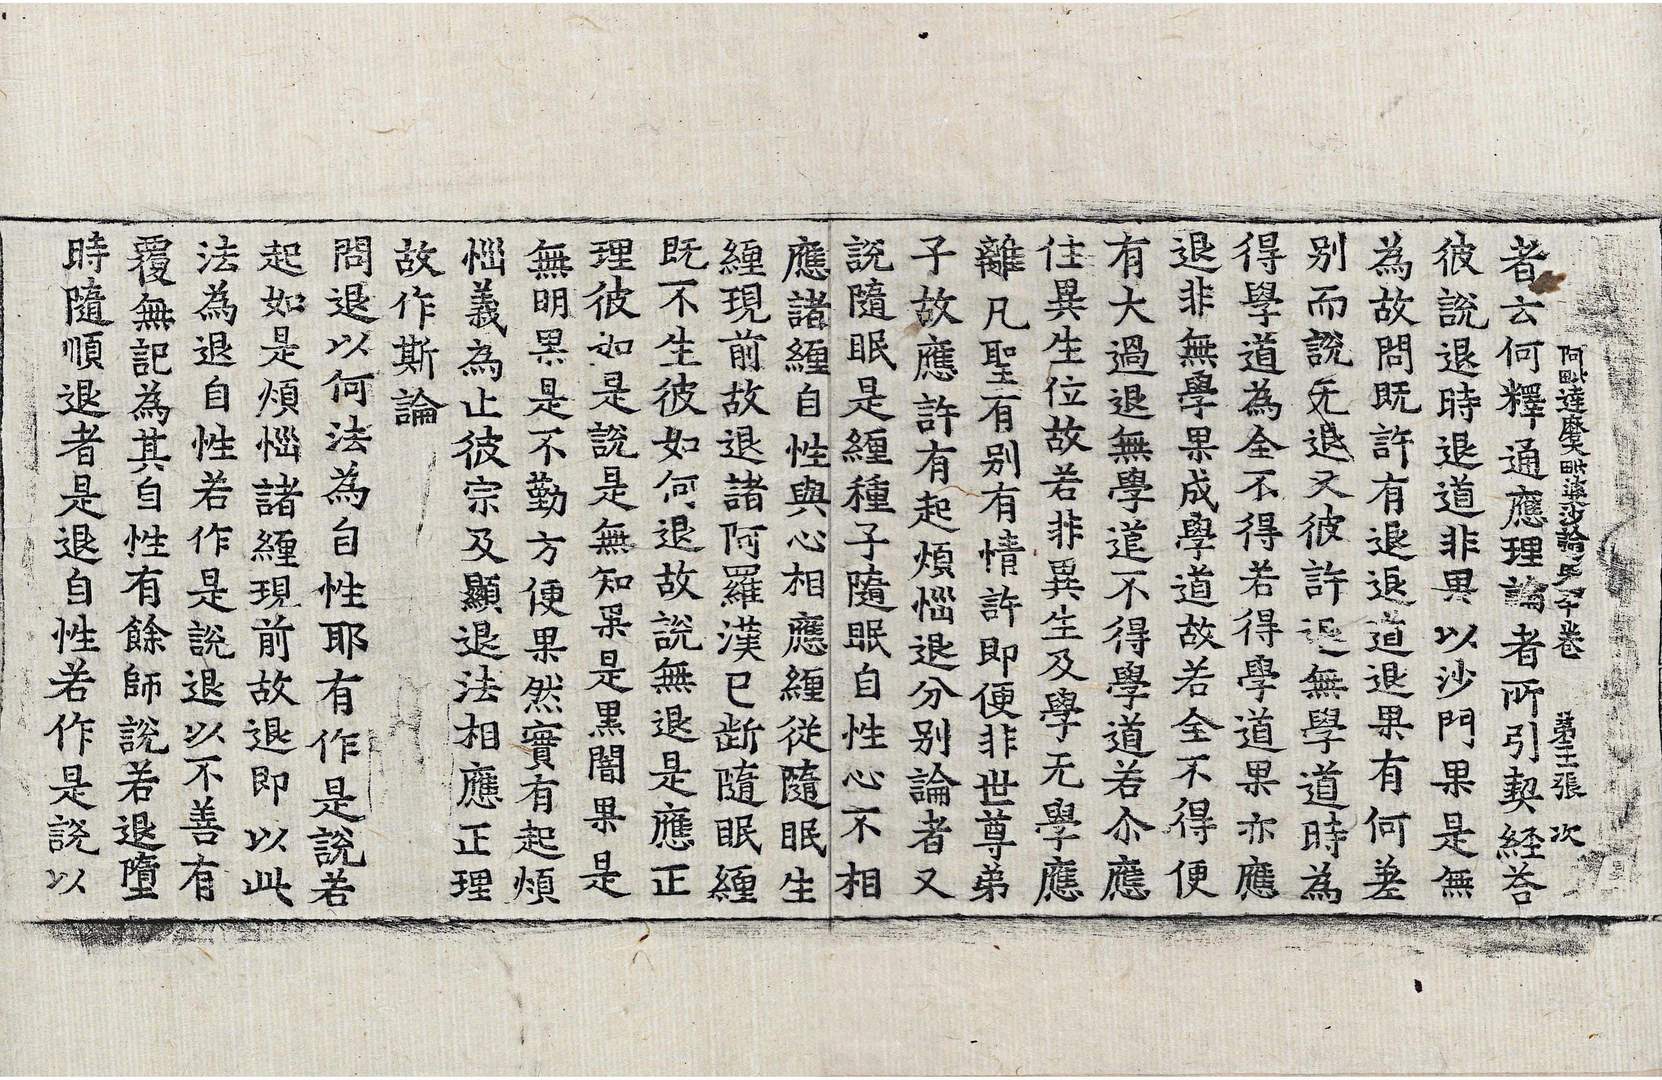 阿毗達磨毗婆沙論第六十卷 第三張 次
者云何釋通應理論者所引契經荅
彼說退時退道非果以沙門果是無
為故問既許有退退道退果有何差
别而說无退又彼許退無學道時為
得學道為全不得若得學道果亦應
退非無學果成學道故若全不得便
有大過退無學道不得學道若尒應
住異生位故若非異生及學无學應
離凡聖有别有情許即便非世尊弟
子故應許有起煩惱退分别論者又
說隨眠是纏種子隨眠自性心不相
應諸纏自性與心相應纏從隨眠生
纏現前故退諸阿羅漢已断隨眠纏
既不生彼如何退故說無退是應正
理彼如是說是無知果是黑闇果是
無明果是不勤方便果然實有起煩
惱義為止彼宗及顯退法相應正理
故作斯論
問退以何法為自性耶有作是說若
起如是煩惱諸纏現前故退即以此
法為退自性若作是說退以不善有
覆無記為其自性有餘師說若退墮
時隨順退者是退自性若作是說以